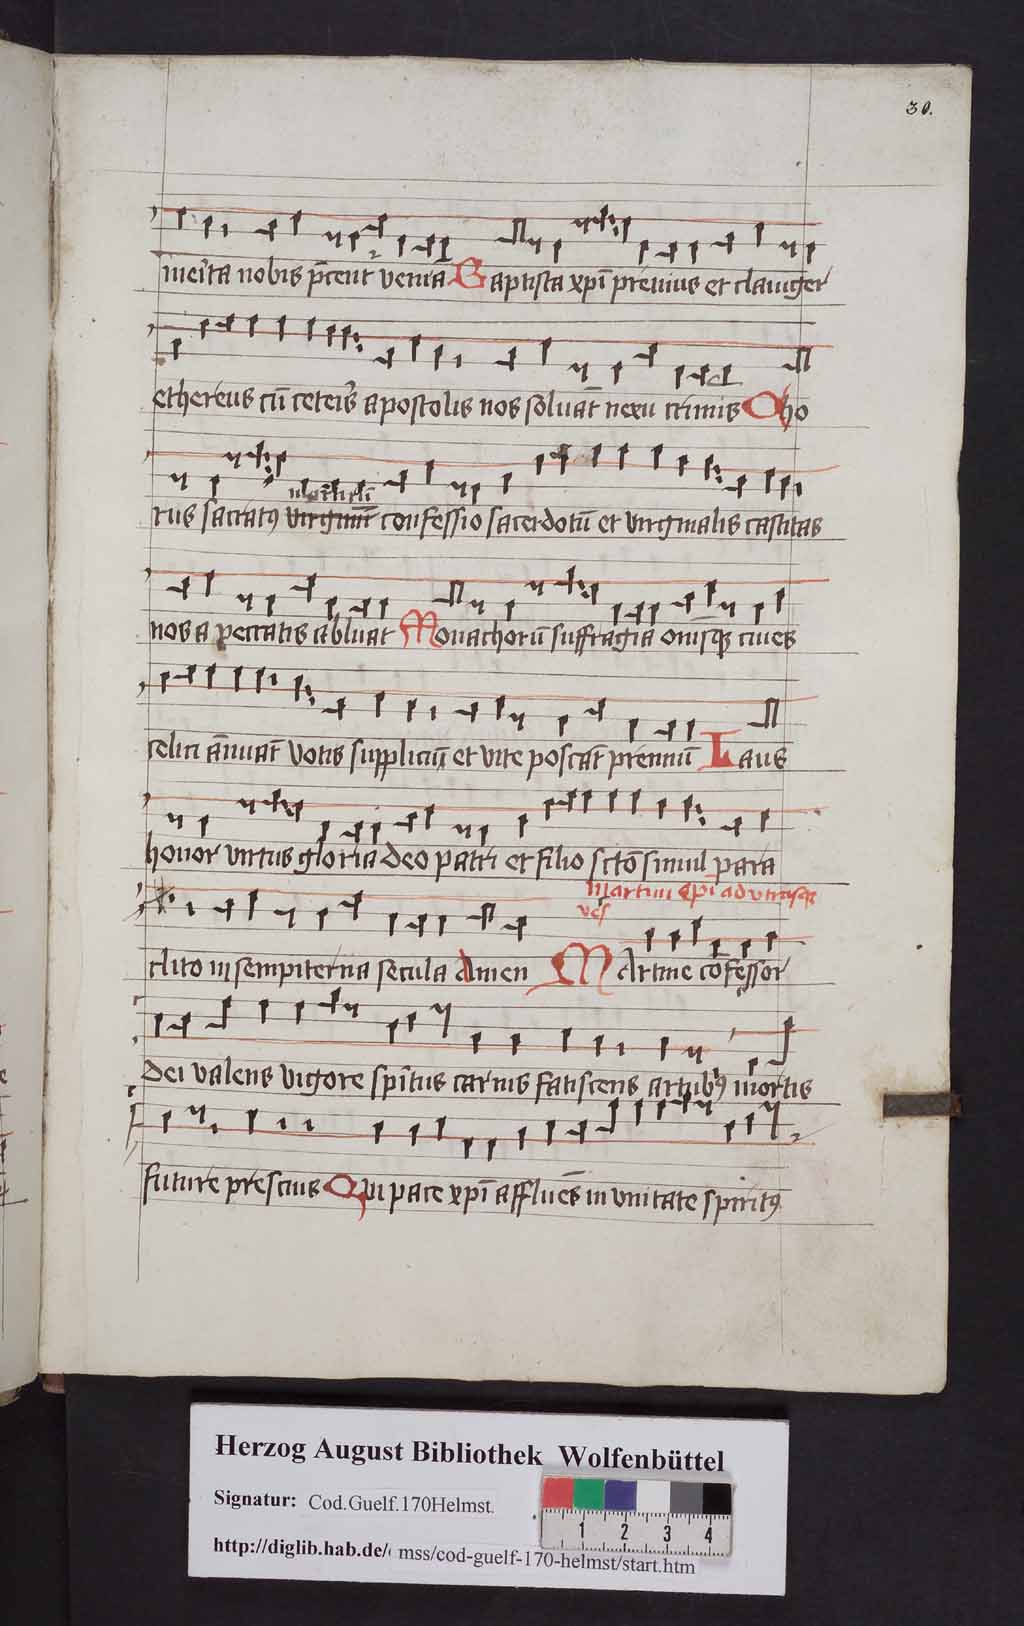 30.
merita nobis p̄cent veniā Baptista xp̄i preuius et clauiger
ethereus cū ceteris apostolis nos soluāt nexu criminis Cho
rus sacratꝰ virginū confessio sacerdotū et virginalis castitas
nos a peccatis abluat Monachorū suffragia om̄sꝙ ciues
celici ānuāt votis supplicū et vite poscāt premiū Laus
honor virtus gloria deo patri et filio sctō simul para
Martini ep̄i ad vtrasqꝫ
ves
clito in sempiterna secula Amen MArtine cōfessor
dei valens vigore spiritus carnis fatiscens artubꝰ mortis
future prescius Qui pace xp̄i affluēs in vnitate spiritꝰ
Herzog August Bibliothek Wolfenbüttel
Signatur: Cod.Guelf.170Helmst.
1 2 3 4
http://diglib.hab.de/ mss/cod-guelf-170-helmst/start.htm